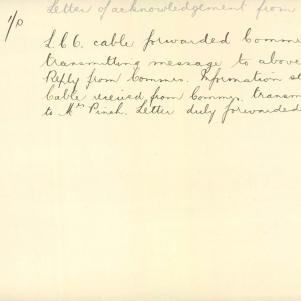 Letter of acknowledgement from
1/0 L.C.C. cable forwarded Comme
transmitting message to above
Reply from Commr. Information st
Cable received from Commr. transm
to Mrs Pinch. Letter duly forwarded